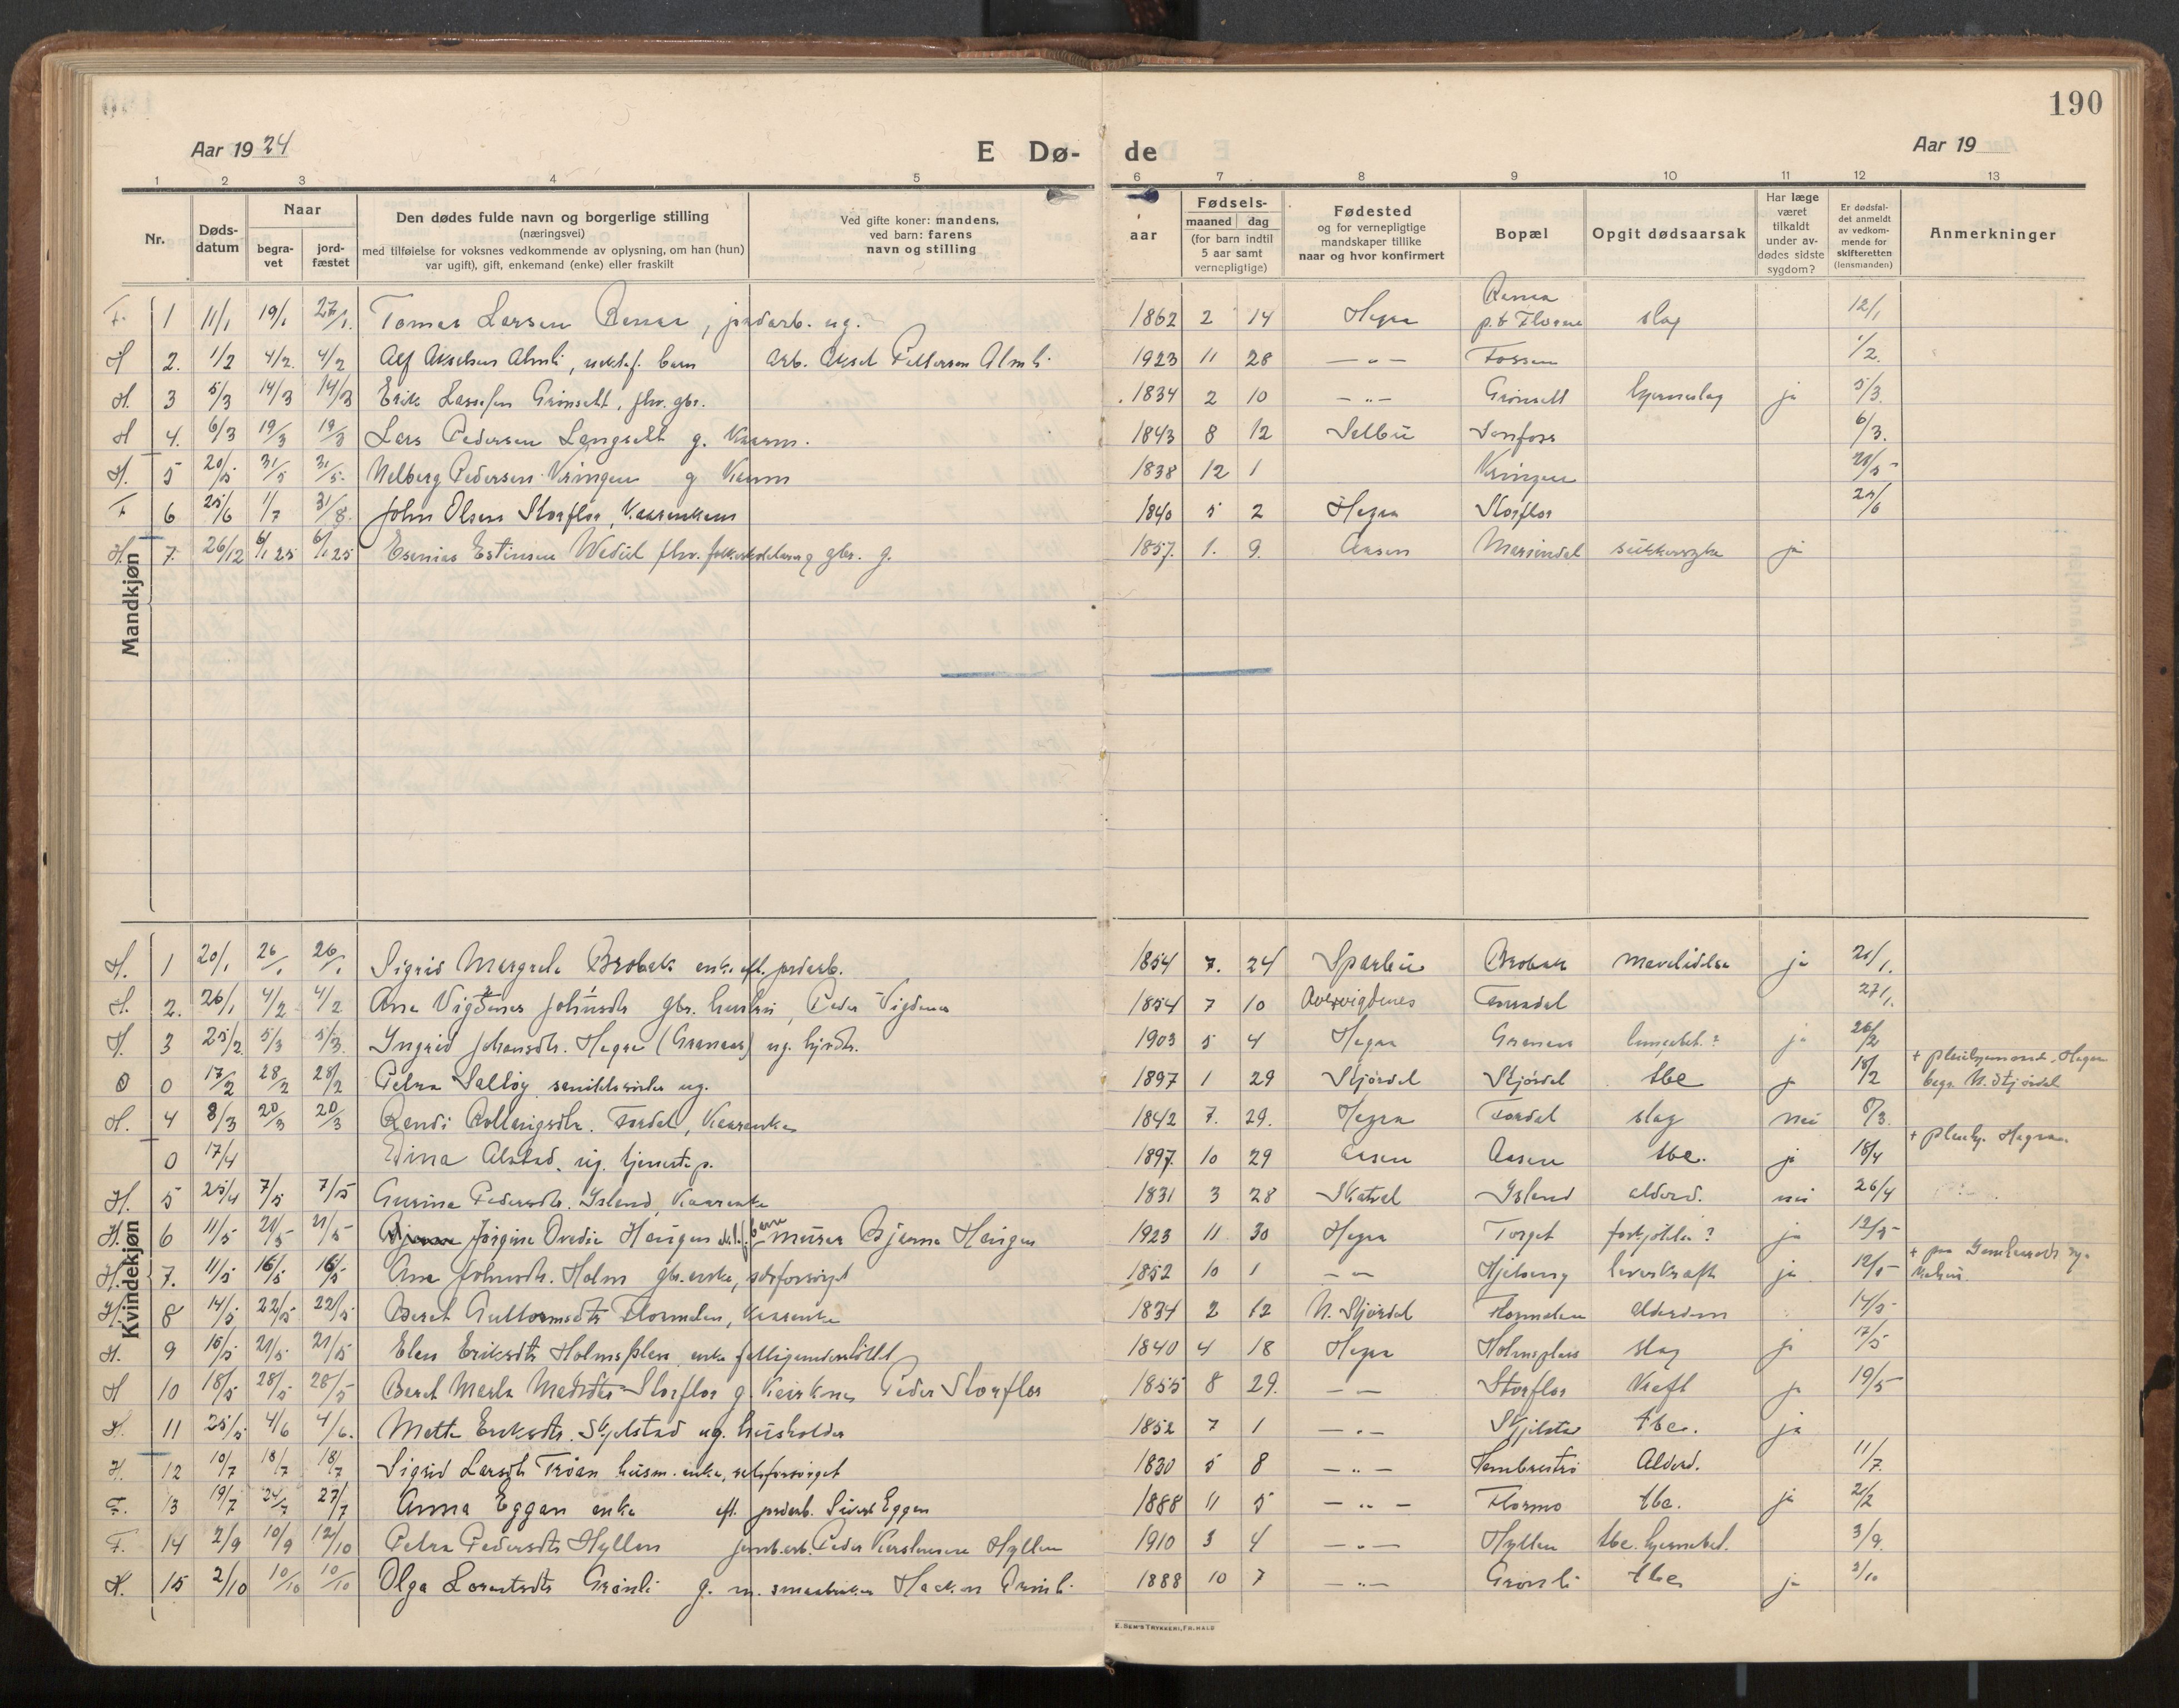 190
Aar 1924 E Dø- de Aar 19
1 2 3 4 5 6 7 8 9 10 11 12 13
Nr. Døds-datum Naar begra-vet jord-fæstet Den dødes fulde navn og borgerlige stilling (næringsvei) med tilføielse for voksnes vedkommende av oplysning, om han (hun) var ugift), gift, enkemand (enke) eller fraskilt Ved gifte koner: mandens, ved barn: farens navn og stilling aar Fødsels- maaned dag (for barn indtil 5 aar samt vernepligtige) Fødested og for vernepligtige mandskaper tillike naar og hvor konfirmert Bopæl Opgit dødsaarsak Har læge været tilkaldt under av-dødes sidste sygdom? Er dødsfal-det anmeldt av vedkom-mende for skifteretten (lensmanden) Anmerkninger
Mandkjøn
F. 1 11/1 19/1 27/1 Tomas Larsen, jordarb. ug. 1862 2 14 Hegra slag 12/1
H 2. 1/2 4/2 4/2 Alf Akselsen Almli, barn arb. Aksel Pettersen Almli 1923 11 28 — " — Fossen 1/2
H. 3 5/3 14/3 14/3 Erik Lassesen Grønselt, fhv. gbr. 1834 2 10 — " — Grønselt hjerneslag ja 5/3
H 4. 6/3 19/3 19/3 Lars Pedersen Langselt g. Kaarm. 1843 8 12 Selbu Sonfoss 6/3.
H. 5 20/5 31/5 31/5 Melberg Pedersen Vringen g Kaarm 1838 12 1 Vringen
F 6 25/6 1/7 31/8 John Olsen Storflor, Kaarenkem 1840 5 2 Hegra Storflor 25/6
H. 7. 26/12 6/1 25 6/1 25 Esenias Estinsen Wedul fhv. gbr. g. 1857. 1. 9. Aasen sukkersyke ja
Kvindekjøn
H. 1 20/1 26/1 26/1 Sigrid Margrete Brobak enke eft. jordarb. 1854 7. 24 Sparbu Brobak mavelidelse ja 21/1.
H. 2. 26/1 4/2 4/2 Ane Vigdenes Johnsdtr gbr. Peder Vigdenes 1854 7 10 Avervigdenes 27/1.
H. 3 25/2 5/3 5/3 Ingrid Johansdtr. Hegra (Granaas) ug. 1903 5 4 Hegra Granaas ja 26/2
0 0 17/2 28/2 28/2 Petra Salløy ug. 1897 1 29 Stjørdal Stjørdal tbc ja 18/2 + pleiehjemmet. Hegra begr. N. Stjørdal
H. 4 8/3 20/3 20/3 Randi Rollaugsdtr. Fordal, Kaarenke 1842 7. 29. Hegra Fordal slag nei 8/3.
0 17/4 Edina Alstad, ug. tjeneste p. 1897. 10 29 Aasen Aasen tbc. ja 18/4 + pleiehj. Hegra.
H. 5 25/4 7/5 7/5 Gurina Pedersdtr. Ysland, Kaarenke 1831 3 28 Skatval Ysland alderd. nei 26/4
H. 6 11/5 21/5 21/5 Jørgine Ovedie Haugen murer Bjarne Haugen 1923 11 30 Hegra Torget forkjølelse? ja 12/5
H. 7. 11/5 16/5 16/5 Ane Johnsdtr. Holm gbr. enke, selvforsørget 1852 10 1 — — Hjelseng leverkræft ja 12/5
H. 8 14/5 22/5 22/5 Beret Guttormsdtr Flormelen, Kaarenke 1834 2 12 N. Stjørdal Flormelen Alderdom 14/5
H. 9 15/5 21/5 21/5 Elen Eriksdtr Holmsplas enke fattigunderstøttet 1840 4 18 Hegra Holmsplas slag ja 17/5
H 10 18/5 28/5 28/5 Beret Marta Madsdtr Storflor g. Kaarkone Peder Storflor 1855 8 29. — — Storflor Kræft ja 19/5
H 11 25/5 4/6 4/6. Mette Eriksdtr. Skjelstad ug. husholder 1852 7 1 — " — Skjelstad tbc. ja
H. 12 10/7 18/7 18/7 Sigrid Larsdtr Trøan husm. enke, selvforsørget 1830 5 8 — " — Alderd. 11/7
F. 13 19/7 24/7 27/7 Anna Eggan enke eft. jordarb. Sivert Eggan 1888 11 5 — " — Flormo tbc. ja
F. 14 2/9 10/9 12/10 Petra Pedersdtr Hyllen jernb. arb. Peder Karstensen Hyllen 1910 3 4 — " — Hyllen tbc. hjernebet. 3/9.
H. 15 2/10 10/10 10/10 Olga Lorentsdtr Grønli g. m. smaabruker Haakon Grønli 1888 10 7 — " — Grønli tbc ja 3/10
E. SEM'S TRYKKERI, FR.HALD